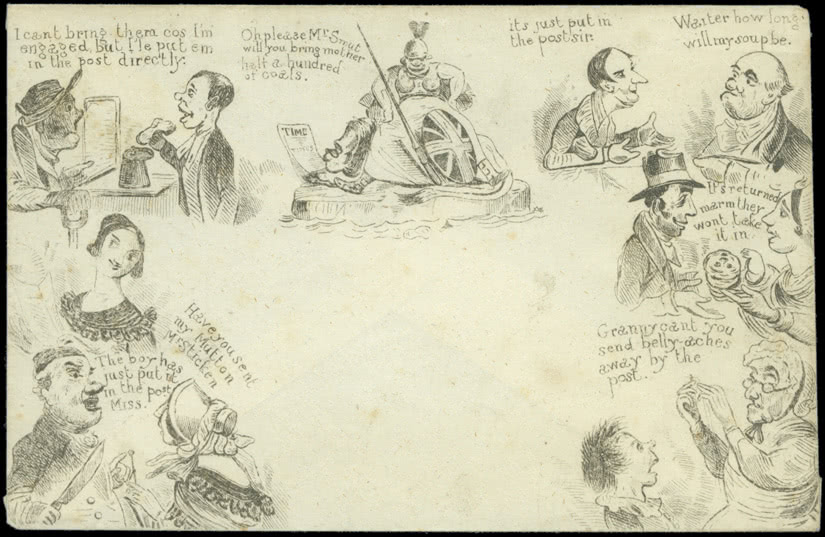 I cant bring them cos I'm
engaged, but I'le put em
in the post directly.
Oh please Mr Smut
will you bring mother
half a hundred
of coals.
TIMC
its just put in
the post sir.
Waiter how long
will my soup be.
It's returned
marm they
wont take
it in.
Granny cant you
send belly-aches
away by the
post.
Have you sent
my Mutton
Mr Sticken
The boy has
just put it
in the post
Miss.